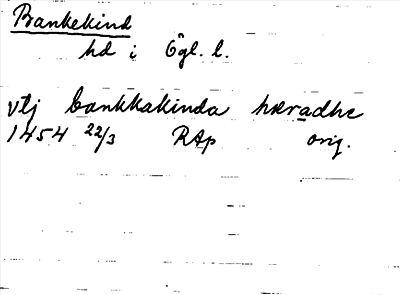 Bankekind
hd i Ögl. l.
vtj bankkakinda hæradhe
1454 22/3 RAp orig.